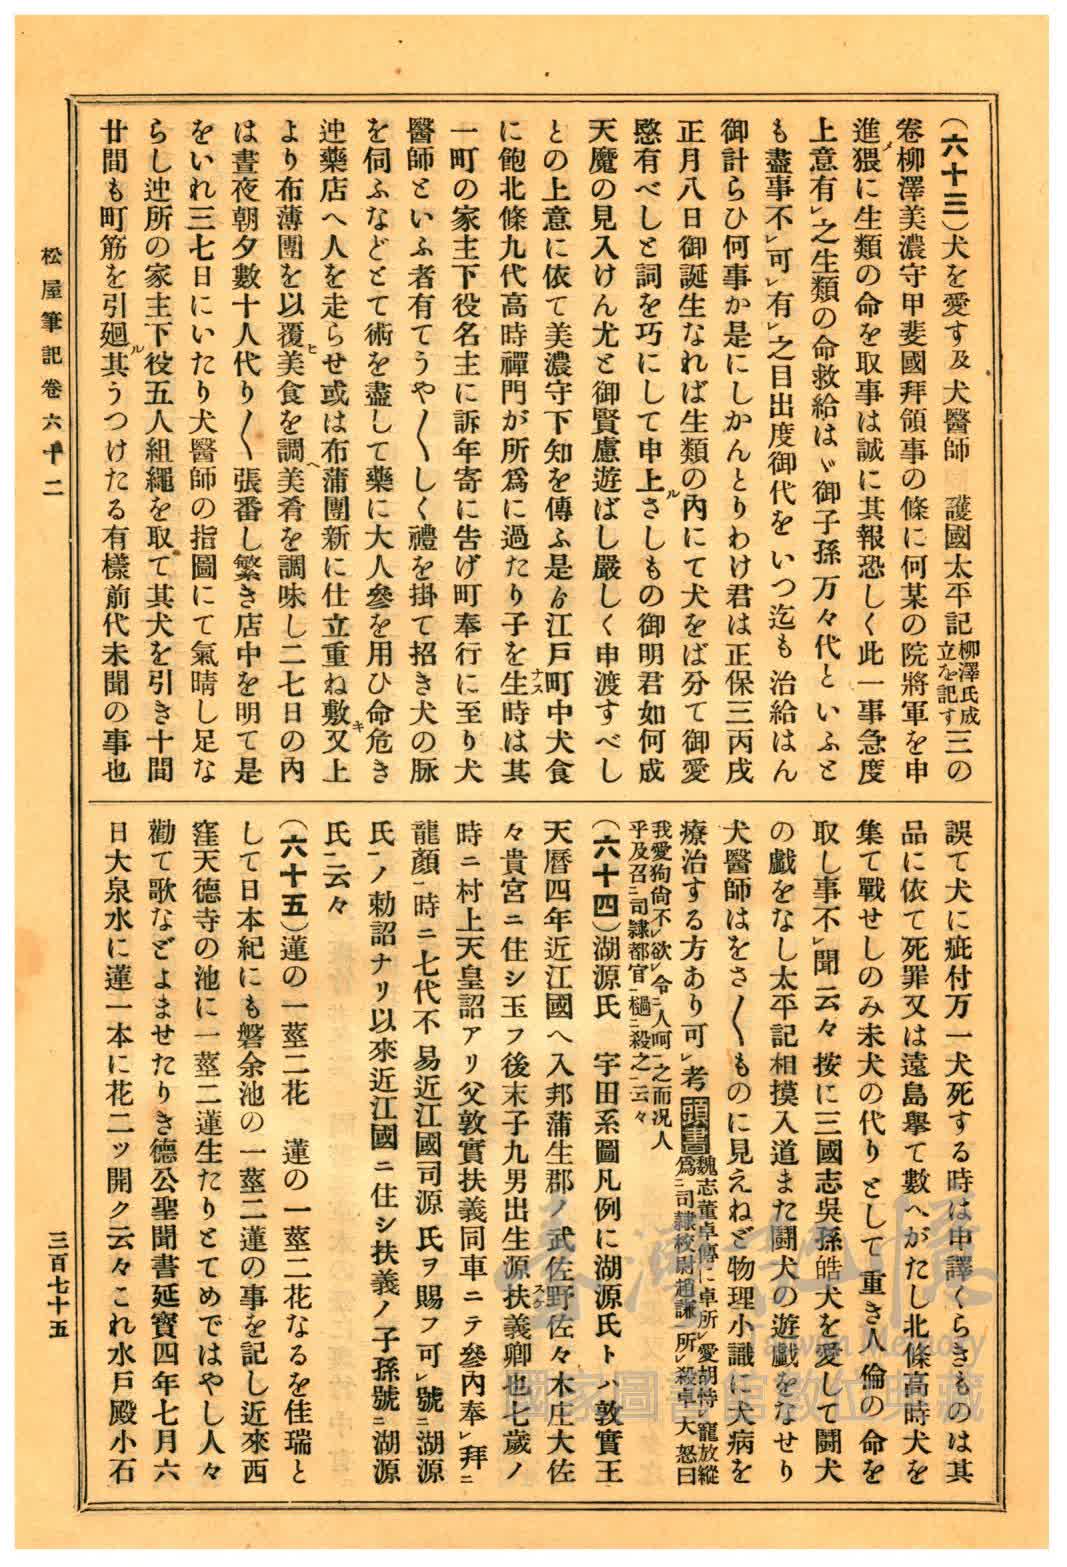 (六十三)犬を愛す及犬醫師 護國太平記柳澤氏成立を記す三の
卷柳澤美濃守甲斐國拜領事の條に何某の院將軍を申
進メ猥に生類の命を取事は誠に其報恐しく此一事急度
上意有㆑之生類の命救給はゞ御子孫万々代といふと
も盡事不㆑可㆑有㆑之目出度御代をいつ迄も治給はん
御計らひ何事か是にしかんとりわけ君は正保三丙戌
正月八日御誕生なれば生類の內にて犬をば分て御愛
愍有べしと詞を巧にして申上ルさしもの御明君如何成
天魔の見入けん尤と御賢慮遊ばし嚴しく申渡すべし
との上意に依て美濃守下知を傳ふ是ゟ江戶町中犬食
に飽北條九代高時禪門が所爲に過たり子を生ナス時は其
一町の家主下役名主に訴年寄に告げ町奉行に至り犬
醫師といふ者有てうや〱しく禮を掛て招き犬の脈
を伺ふなどとて術を盡して藥に大人參を用ひ命危き
迚藥店へ人を走らせ或は布蒲團新に仕立重ね敷キ又上
より布薄團を以覆ヒ美食を調ヘ美肴を調味し二七日の內
は晝夜朝夕數十人代り〱張番し繁き店中を明て是
をいれ三七日にいたり犬醫師の指圖にて氣晴し足な
らし迚所の家主下役五人組繩を取て其犬を引き十間
廿間も町筋を引廻ル其うつけたる有樣前代未聞の事也
誤て犬に疵付万一犬死する時は申譯くらきものは其
品に依て死罪又は遠島擧て數へがたし北條高時犬を
集て戰せしのみ未犬の代りとして重き人倫の命を
取し事不㆑聞云々按に三國志吳孫皓犬を愛して鬪犬
の戲をなし太平記相摸入道また鬪犬の遊戲をなせり
犬醫師はをさ〱ものに見えねど物理小識に犬病を
療治する方あり可㆑考頭書魏志董卓傳に卓所㆑愛胡恃㆑寵放縱
爲㆓司隸校尉趙謙㆒所㆑殺卓大怒曰
我愛狗尙不㆑欲㆑令㆓人呵㆒之而況人
乎及召㆓司隸都官㆒檛㆓殺之㆒云々
(六十四)湖源氏 宇田系圖凡例に湖源氏トハ敦實王
天曆四年近江國へ入邦蒲生郡ノ武佐野佐々木庄大佐
々貴宮ニ住シ玉フ後末子九男出生源扶スケ義卿也七歲ノ
時ニ村上天皇詔アリ父敦實扶義同車ニテ參內奉㆑拜㆓
龍顏㆒時ニ七代不易近江國司源氏ヲ賜フ可㆑號㆓湖源
氏㆒ノ勅詔ナリ以來近江國ニ住シ扶義ノ子孫號㆓湖源
氏㆒云々
(六十五)蓮の一莖二花 蓮の一莖二花なるを佳瑞と
して日本紀にも磐余池の一莖二蓮の事を記し近來西
窪天德寺の池に一莖二蓮生たりとてめではやし人々
勸て歌などよませたりき德公聖聞書延寶四年七月六
日大泉水に蓮一本に花二ッ開ク云々これ水戶殿小石
松屋筆記卷六十二
三百七十五
臺灣記憶
Taiwan Memory
國家圖書館數位典藏